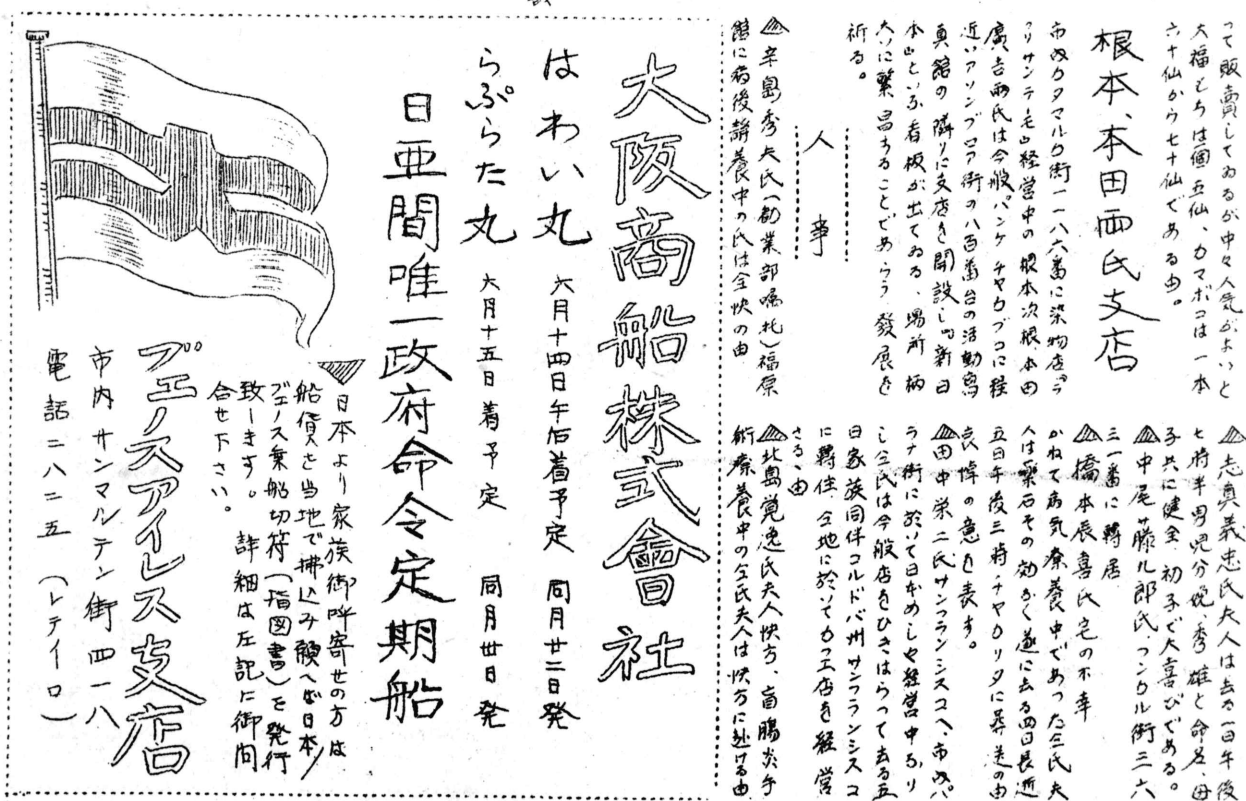 って販賣してゐるが中々人気がよいと
大福もちは一個五仙、カマボコは一本
六十仙から七十仙である由。
根本、本田両氏支店
市内カタマルカ街一一八六番に染物店「ラ
廣吉両氏は今般パンケ チヤカブコに経
近いアソンブロア街の八百番台の活動寫
真館の隣りに支店を開設し「新日
本」といふ看板が出てゐる、場所柄
大いに繁昌することであらう發展を
祈る。
人事
辛島秀夫氏(勧業部嘱托)福原
館に病後静養中の氏は全快の由
志真義忠氏夫人は去る一日午後
七時半男児分娩、秀雄と命名、母
子共に健全、初子で大喜びである。
中尾藤九郎氏 ウンクル街三六
三一番に轉居
橋本辰喜氏宅の不幸
かねて病気療養中であった仝氏夫
人は薬石その効なく遂に去る四日長逝
五日午後三時チヤカリタに葬送の由
哀悼の意を表す。
田中栄二氏サンフランシスコへ、市内パ
ラナ街に於いて日本めしや経営中なり
し仝氏は今般店をひきはらって去る五
日家族同伴コルドバ州サンフランシスコ
に轉住、仝地に於いてカフエ店を経営
さる、由
北島覚逸氏夫人快方、盲腸炎手
術療養中の仝氏夫人は快方に赴ける由
大阪商船株式會社
はわい丸 六月十四日午后着予定 同月廿二日発
らぷらた丸 六月十五日着予定 同月卅日発
日亜間唯一政府命令定期船
日本より家族御呼寄せの方は
船賃を当地で拂込み願へば日本ノ
ブエノス乗船切符(指図書)を発行
致します。 詳細は左記に御問
合せ下さい。
ブエノスアイレス支店
市内サンマルテン街四一八
電話二八二五 (レテイーロ)